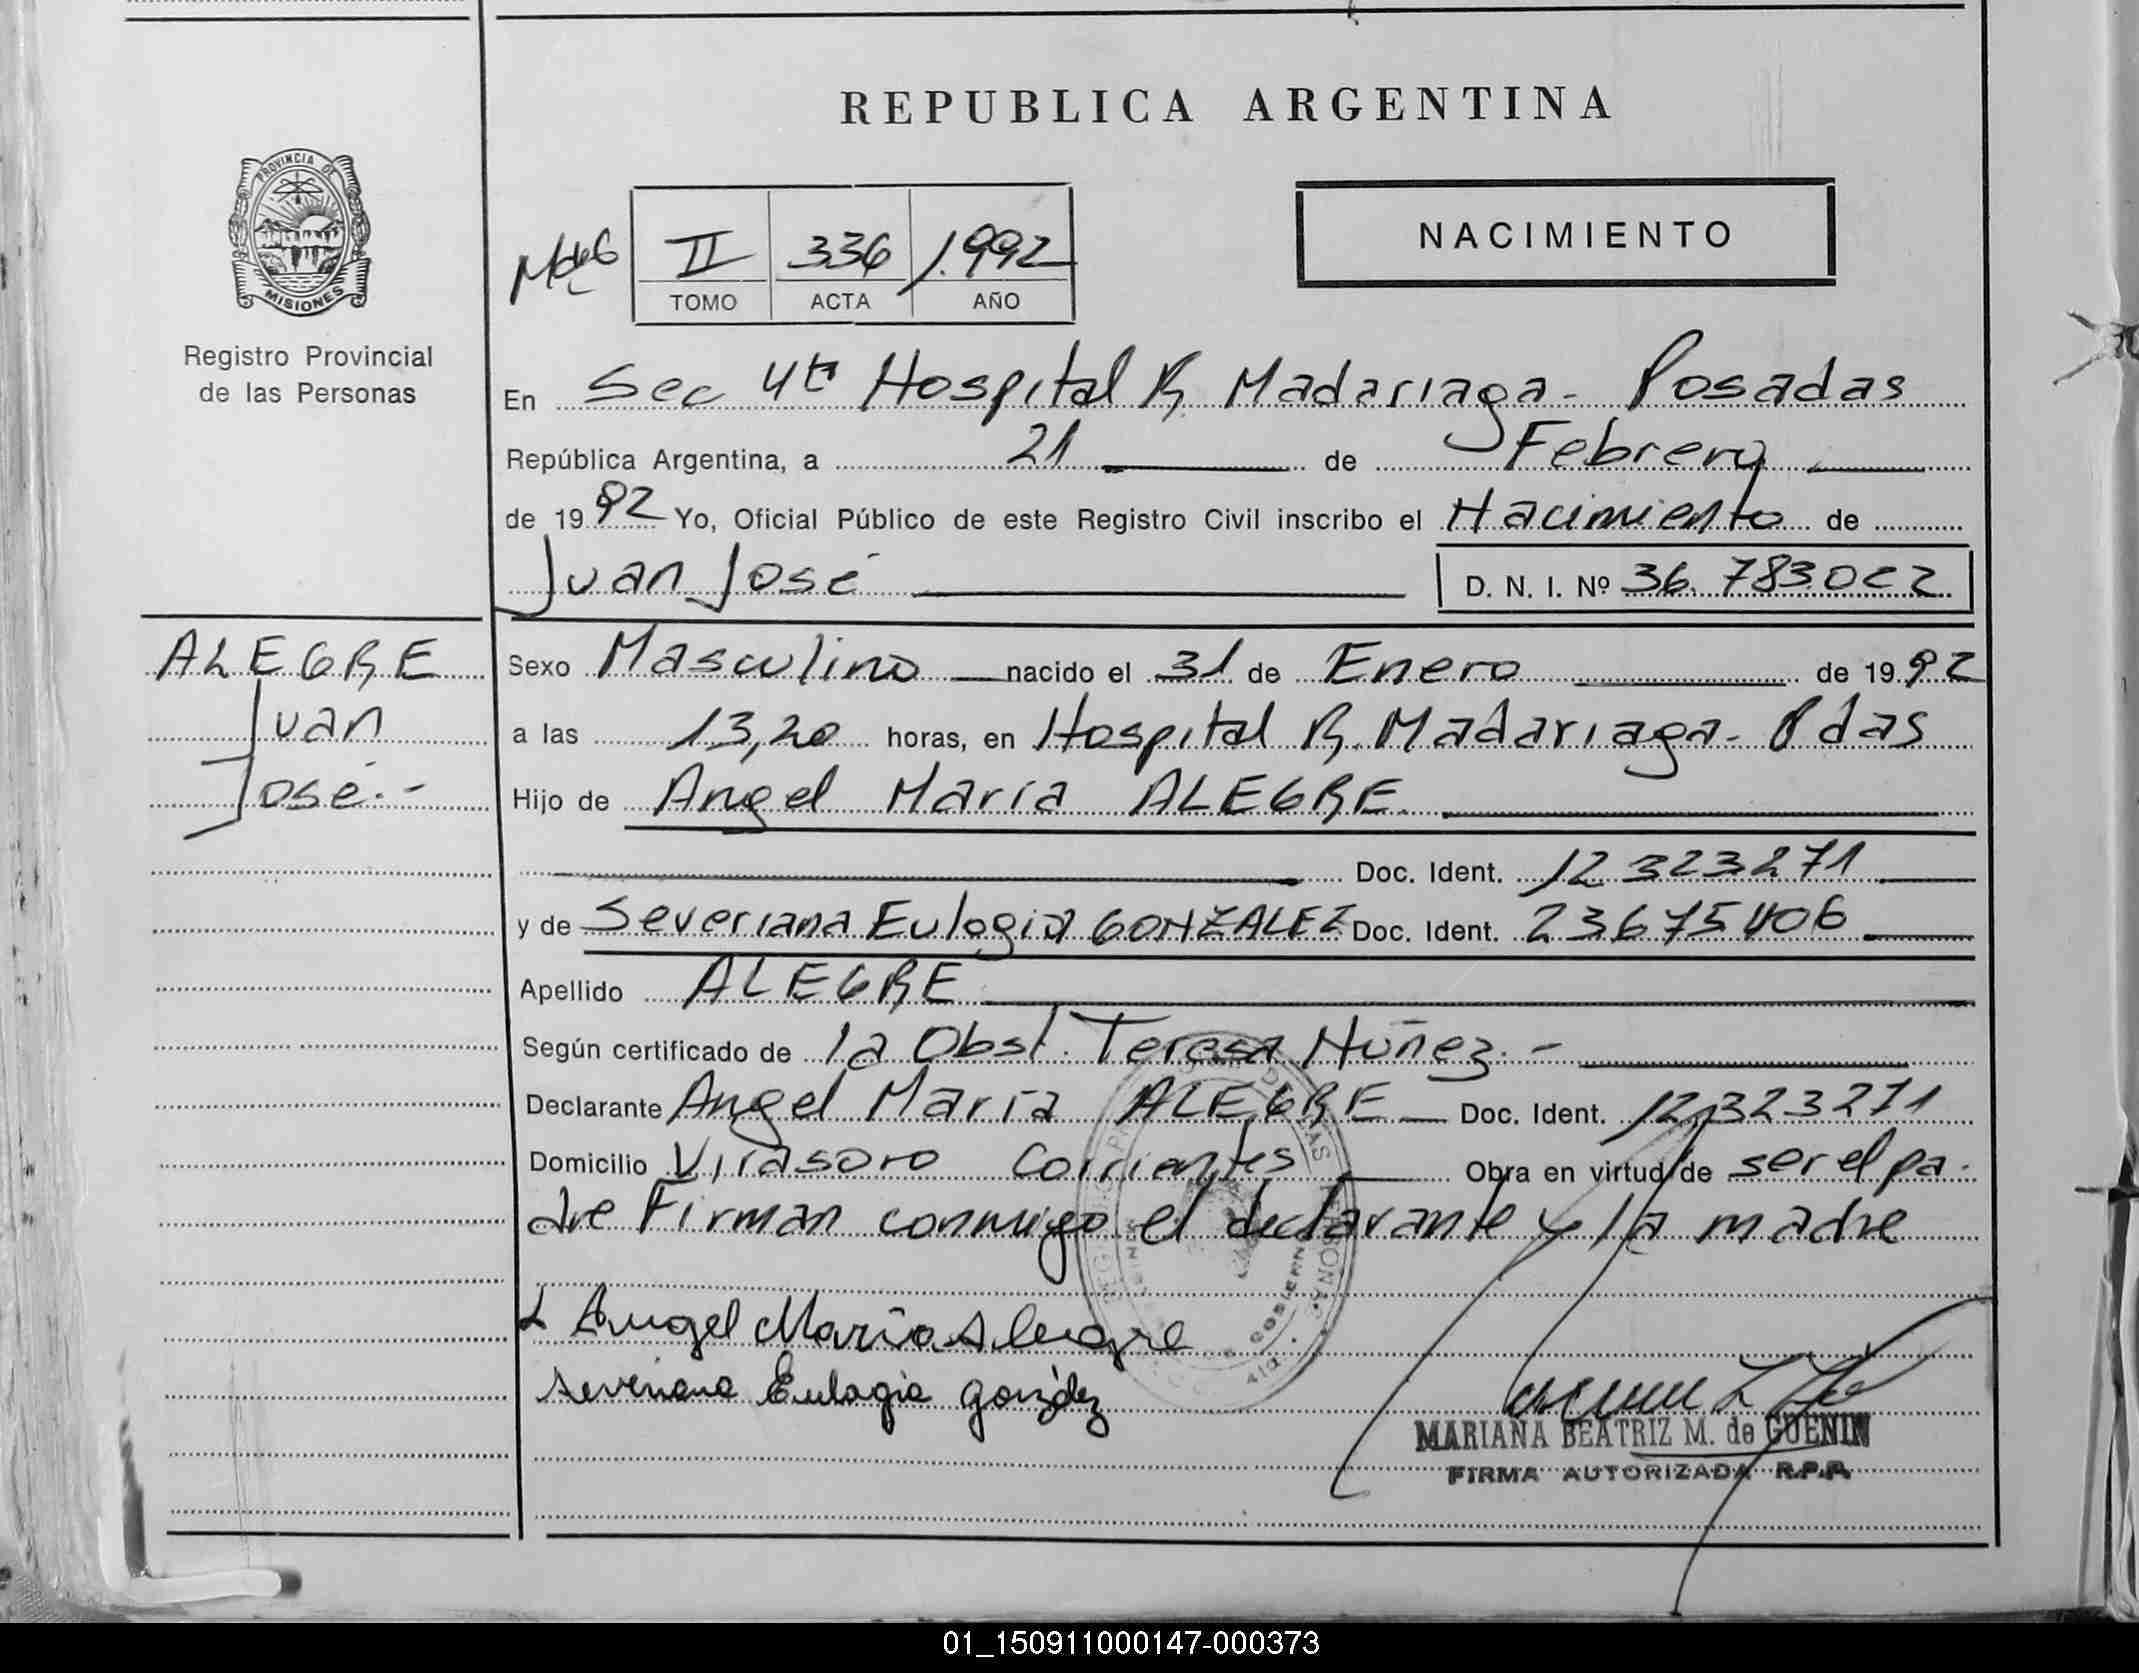 REPUBLICA ARGENTINA
PROVINCIA DE
MISIONES
Registro Provincial
de las Personas
II 336 1.992
TOMO ACTA AÑO
NACIMIENTO
En Sec 4ta Hospital R. Madariaga - Posadas
República Argentina, a 21 de Febrero
de 1992 Yo, Oficial Público de este Registro Civil inscribo el Nacimiento de
Juan José D. N. I. Nº 36.783.022
ALEGRE
Juan
José.-
Sexo Masculino nacido el 31 de Enero de 1992
a las 13,20 horas, en Hospital R. Madariaga - Pdas
Hijo de Angel María ALEGRE.
Doc. Ident. 12323271
y de Severiana Eulogia GONZALEZ Doc. Ident. 23675406
Apellido ALEGRE
Según certificado de la Obst. Teresa Núñez.-
Declarante Angel María ALEGRE Doc. Ident. 12,323271
Domicilio Virasoro Corrientes Obra en virtud de ser el pa-
dre Firman conmigo el declarante y la madre
Angel María Alegre
Severiana Eulogia González
MARIANA BEATRIZ M. de GUENIN
FIRMA AUTORIZADA R.P.P.
01_150911000147-000373